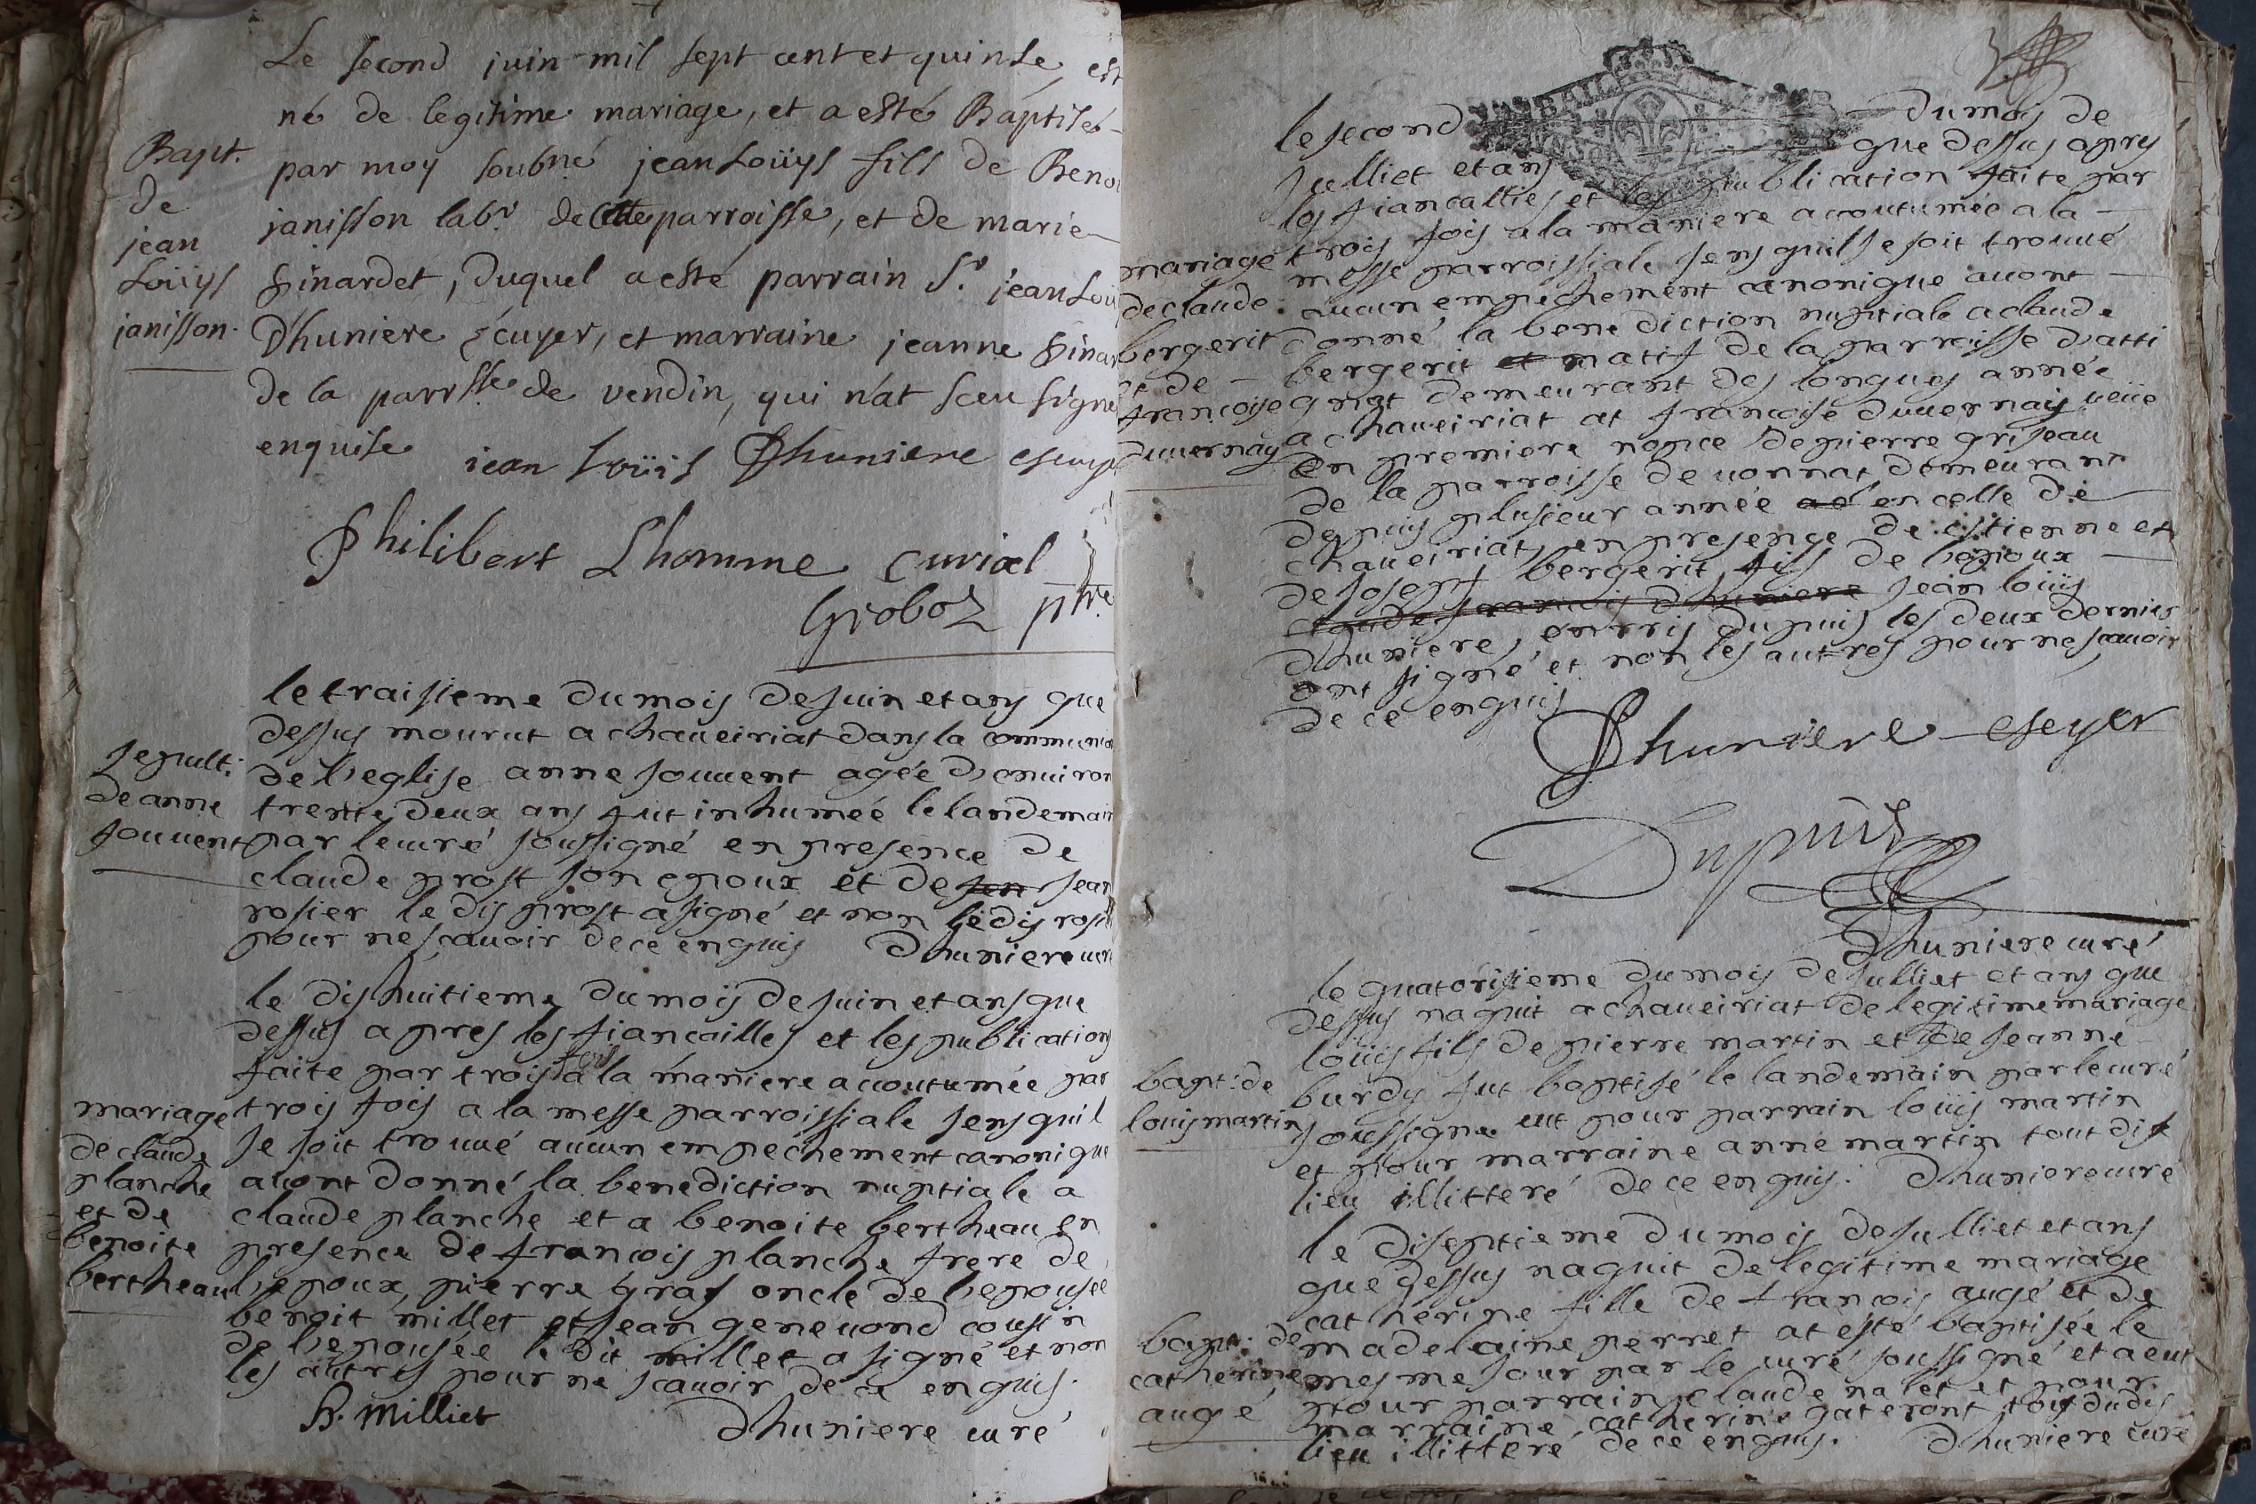 Le second juin mil sept cent et quinse, est
né de legitime mariage, et a esté Baptisé
par moy soubné jean Loüys fils de Beno
janisson labr. de Cette parroisse, et de marie
pinardet, duquel a esté parrain Sr. jean Loü
Dhuniere Écuyer, et marraine jeanne pinar
de la parrsse de vendin, qui n'at sceu signé
enquise
Bapt.
de
jean
Loüys
janisson.
jean Loüis Dhuniere escuye
Philibert Lhomme curial
Groboz ptre
le traisieme du mois de Juin et ans que
dessus mourut a chaveiriat dans la communion
de l'eglise anne Jouvent agée d'environ
trente deux ans fut inhumée le landemain
par le curé soussigné en presence de
claude prost son epoux et de son Jean
rosier le dis prost a signé et non le dis rosier
pour ne scavoir de ce enquis Dhuniere curé
sepult:
de anne
Jouvent
le dishuitieme du mois de Juin et ans que
dessus apres les fiancailles et les publications
faite par trois fois a la maniere accoutumée par
trois fois a la messe parroissiale sens quil
se soit trouvé aucun empechement canonique
avont donné la benediction nuptiale a
claude planche et a benoite bertheau en
presence de francois planche frere de
l'epoux, pierre gras oncle de l'epousée
benoit millet et Jean genevond cousin
de l'epousée le dit millet a signé et non
les autres pour ne scavoir de ce enquis.
mariage
de claude
planche
et de
benoite
bertheau
B. Milliet Dhuniere curé
le second du mois de
Julliet et ans que dessus apres
les fiancallies et les publication faite par
trois fois a la maniere accoutumée a la
messe parroissiale sens quil se soit trouvé
aucun empechement canonique avont
donné la benediction nuptiale a claude
bergerit et natif de la parroisse d'atti
gnat demeurant des longues année
a chaveiriat et francoise duvernay veüe
en premiere nopce de pierre griseau
de la parroisse de vonnat demeurant
depuis plusieur année en celle de
chaveiriat, en presence de estienne et
de Josept bergerit fils de l'epoux
claude francois dhuniere Jean loüis
dhuniere, dupuis les deux dernier
ont signé et non les autres pour ne scavoir
de ce enquis
mariage
de claude
bergerit
et de
francoise
duvernay
Dhuniere eseyer
Dupuis
Dhuniere curé
le quatorisieme du mois de Julliet et ans que
dessus naquit a chaveiriat de legitime mariage
loüis fils de pierre martin et de Jeanne
burdy fut baptisé le landemain par le curé
soussigné eut pour parrain loüis martin
et pour marraine anne martin tout dis
lieu illitteré de ce enquis. Dhuniere curé
bapt: de
louis martin
le diseptieme du mois de Julliet et ans
que dessus naquit de legitime mariage
catherine fille de francois augé et de
madelaine perret at esté baptisée le
mesme Jour par le curé soussigné et a eut
pour parrain claude nalet et pour
marraine catherine gateront tous dudis
lieu illitteré de ce enquis. Dhuniere curé
bapt: de
catherine
augé